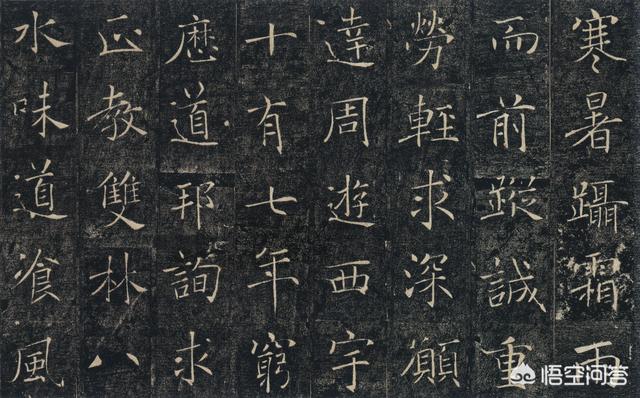 寒暑躡霜雨
而前蹤誠重
勞輕求深願
達周遊西宇
十有七年窮
歷道邦詢求
正教雙林八
水味道飡風
悟空问答